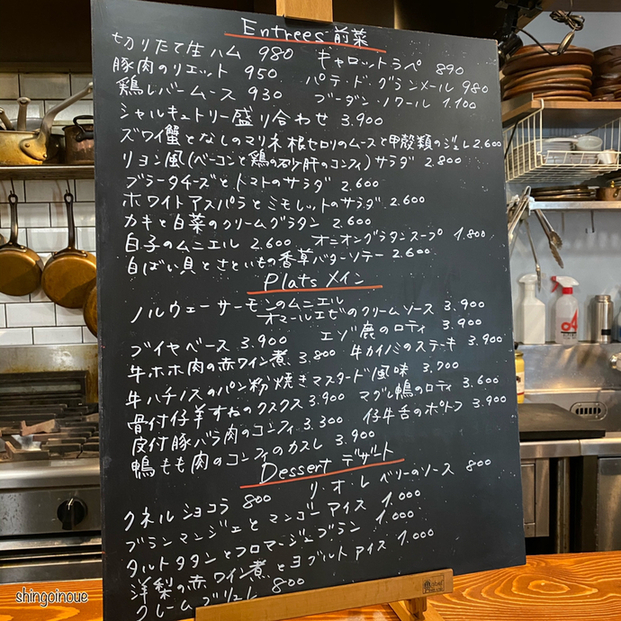 Entrees 前菜
切りたて生ハム 980 キャロットラペ 890
豚肉のリエット 950 パテ・ド・グランメール 980
鶏レバームース 930 ブーダン・ノワール 1.100
シャルキュトリー盛り合わせ 3.900
ズワイ蟹となしのマリネ 根セロリのムースと甲殻類のジュレ 2.600
リヨン風(ベーコンと鶏の砂肝のコンフィ)サラダ 2.800
ブラータチーズとトマトのサラダ 2.600
ホワイトアスパラとミモレットのサラダ 2.600
カキと白菜のクリームグラタン 2.600
白子のムニエル 2.600 オニオングラタンスープ 1.800
白ばい貝とさといもの香草バターソテー 2.600
Plats メイン
ノルウェーサーモンのムニエル
オマールエビのクリームソース 3.900
ブイヤベース 3.900 エゾ鹿のロティ 3.900
牛ホホ肉の赤ワイン煮 3.800 牛カイノミのステーキ 3.900
牛ハチノスのパン粉焼きマスタード風味 3.200
骨付仔羊すねのクスクス 3.900 マグレ鴨のロティ 3.600
皮付豚バラ肉のコンフィ 3.300 仔牛舌のポトフ 3.900
鴨もも肉のコンフィのカスレ 3.900
Dessert デザート
クネルショコラ 800 リ・オ・レ ベリーのソース 800
ブランマンジェとマンゴーアイス 1.000
タルトタタンとフロマージュブラン 1.000
洋梨の赤ワイン煮とヨーグルトアイス 1.000
クレームブリュレ 800
shingoinoue